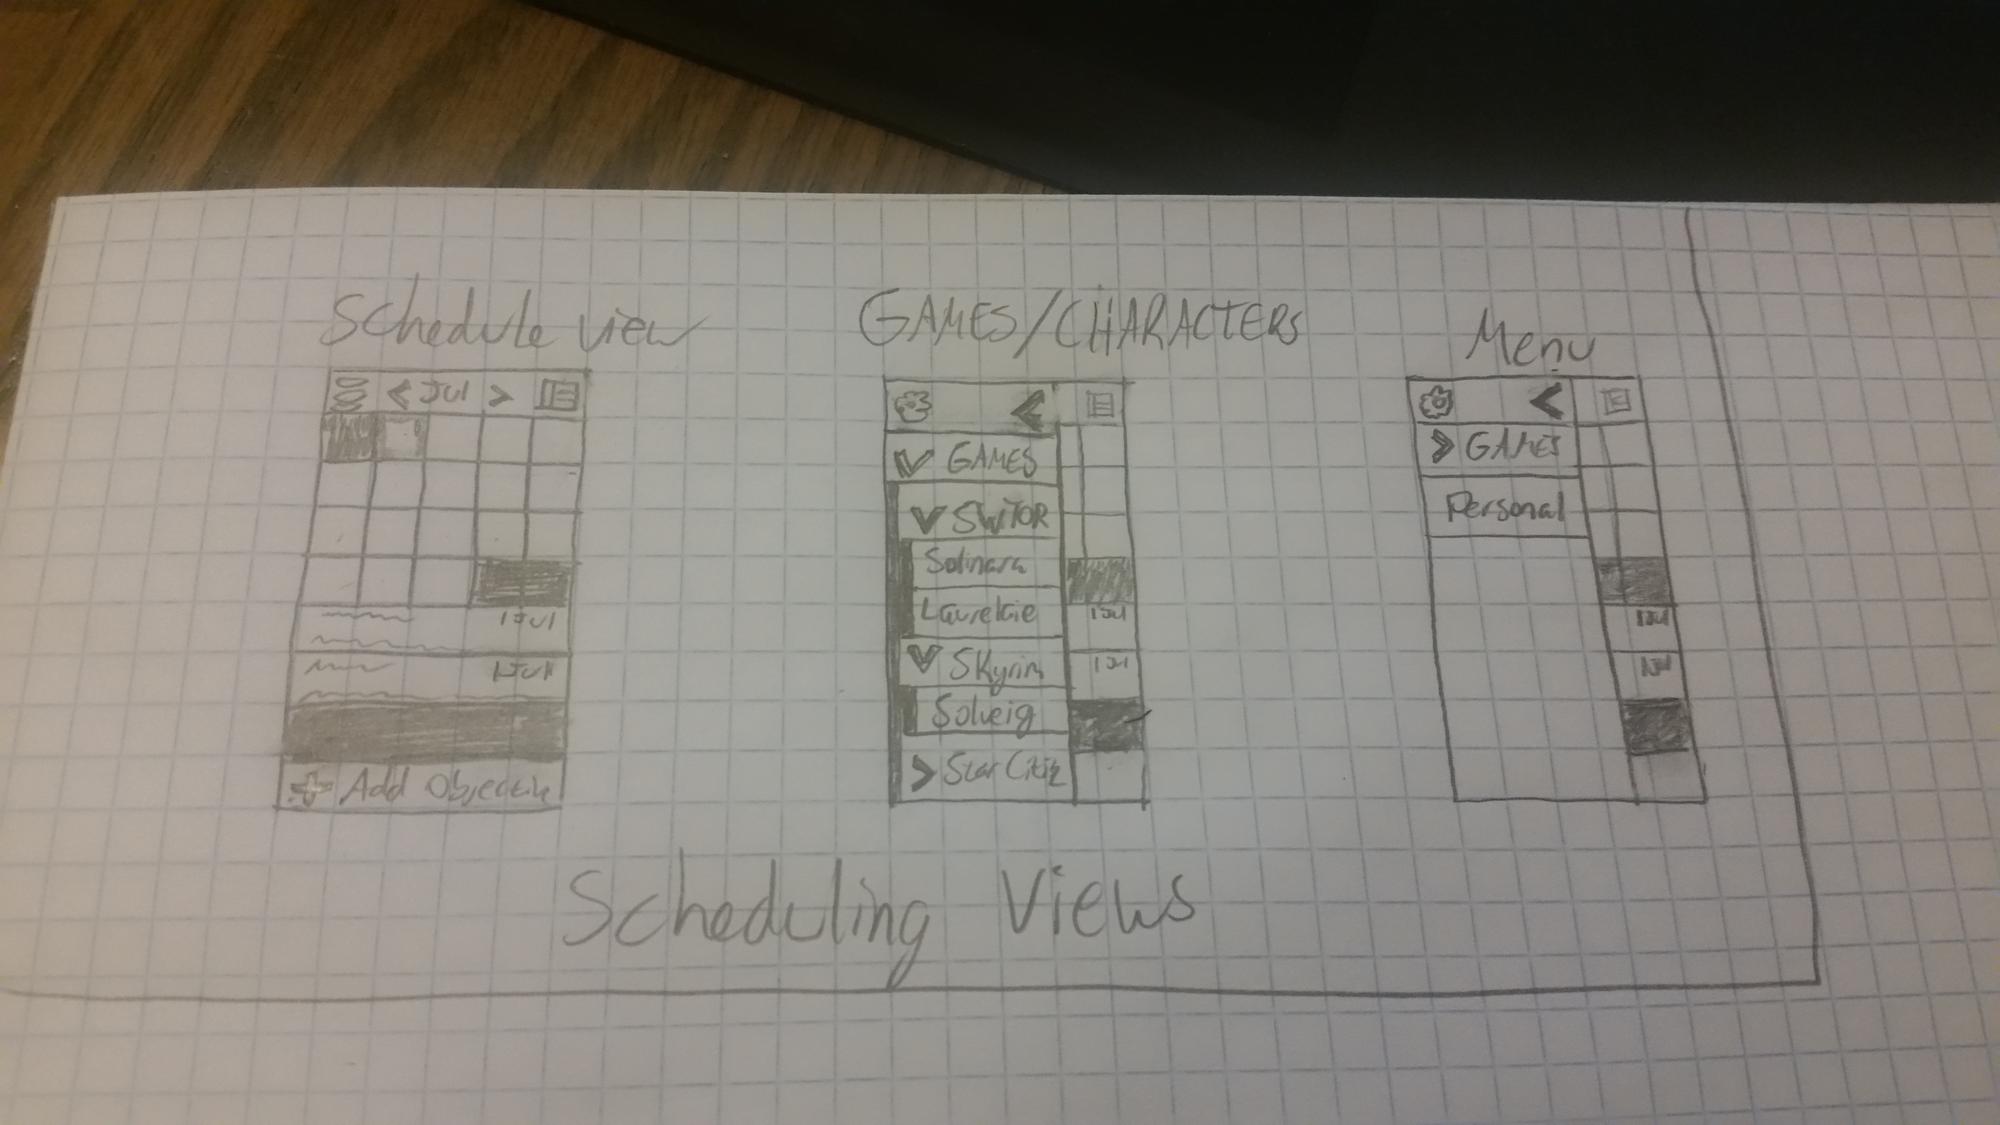 Schedule view
< Jul >
1 Jul
1 Jul
+ Add Objective
GAMES/CHARACTERS
<
V GAMES
V SWTOR
Solinara
Laurelcie
1 Jul
V Skyrim
1 Jul
Solveig
> Star Citiz
Menu
<
> GAMES
Personal
1 Jul
1 Jul
Scheduling Views